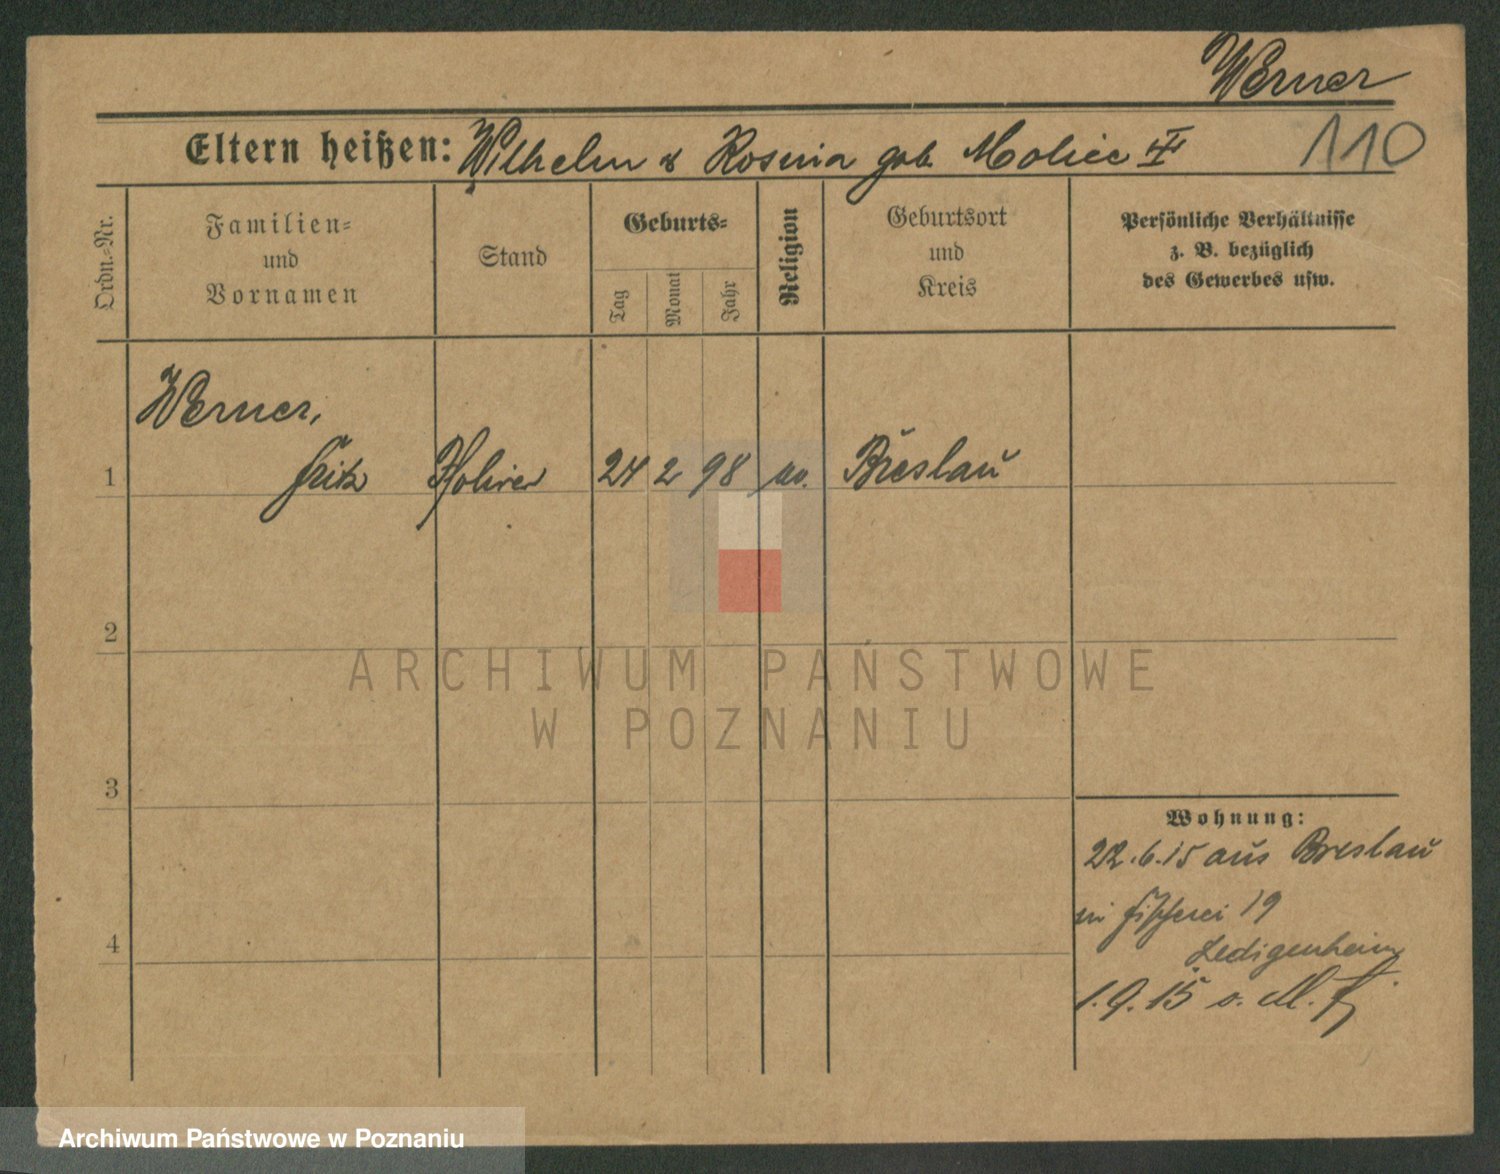 Werner
Eltern heißen: Wilhelm & Rosina geb.
110
Ordn.-Nr.
Familien-
und
Vornamen
Stand
Geburts-
Tag
Monat
Jahr
Religion
Geburtsort
und
Kreis
Persönliche Verhältnisse
z. B. bezüglich
des Gewerbes usw.
Werner,
1 Fritz 24 2 98 Breslau
2
3
4
Wohnung:
22.6.15 aus Breslau
in Fischerei 19
Ledigenheim
1.9.15
ARCHIWUM PAŃSTWOWE
W POZNANIU
Archiwum Państwowe w Poznaniu